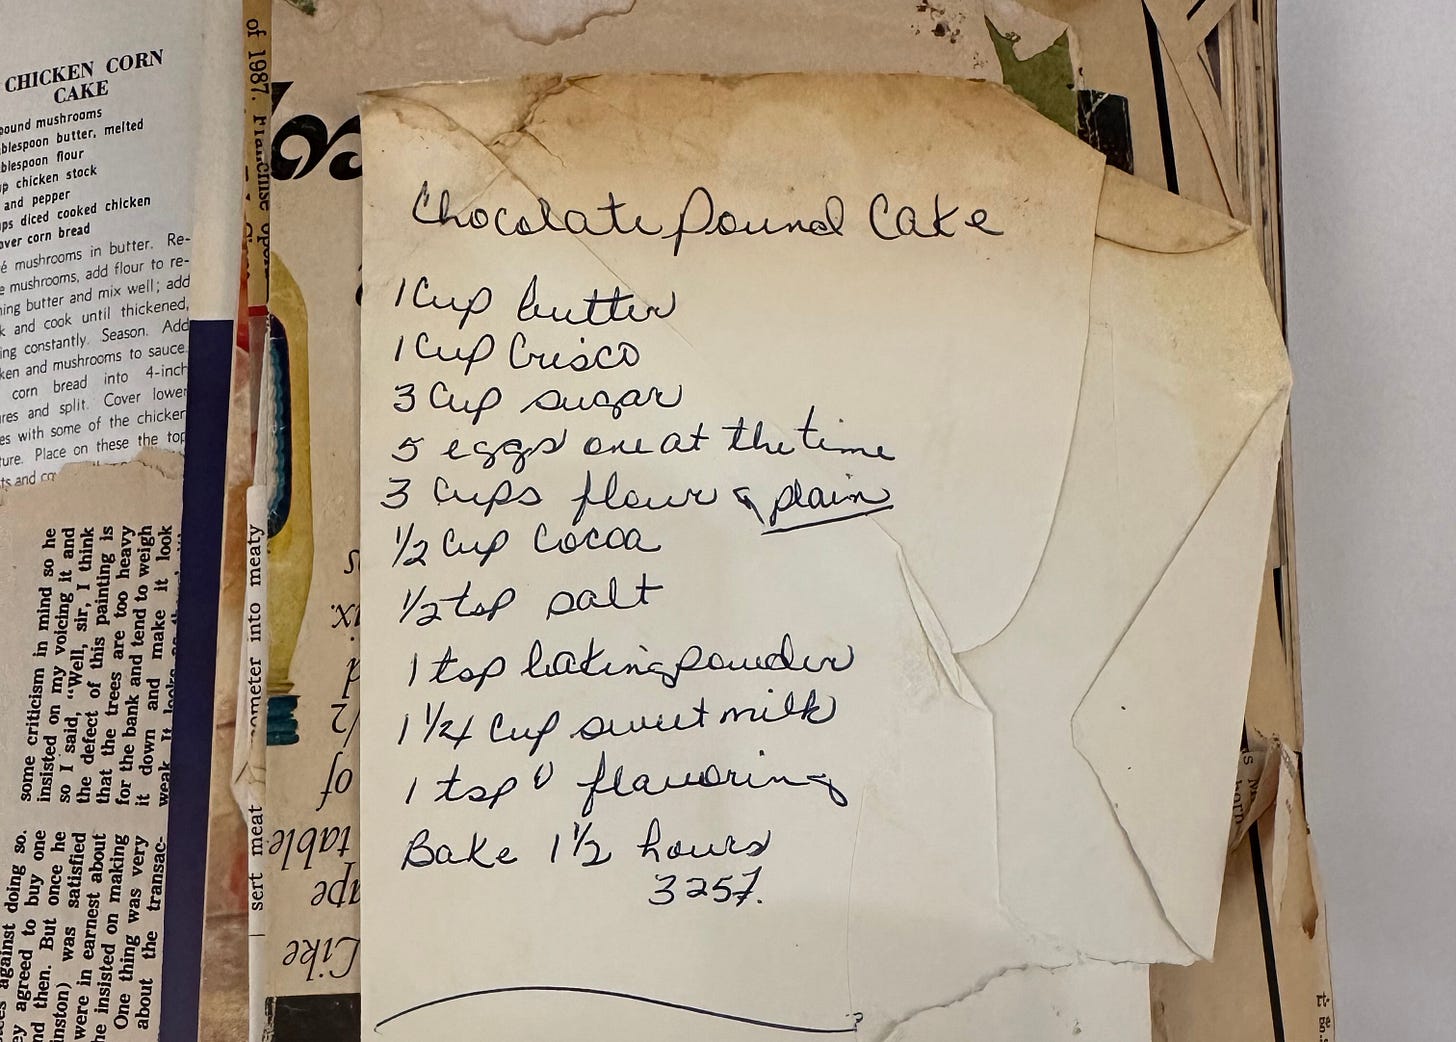 CHICKEN CORN
CAKE
pound mushrooms
blespoon butter, melted
blespoon flour
p chicken stock
and pepper
ps diced cooked chicken
over corn bread
é mushrooms in butter. Re-
e mushrooms, add flour to re-
ning butter and mix well; add
k and cook until thickened,
ing constantly. Season. Add
ken and mushrooms to sauce.
corn bread into 4-inch
res and split. Cover lower
es with some of the chicken
ture. Place on these the top
ts and
some criticism in mind so he
insisted on my voicing it and
so I said, "Well, sir, I think
the defect of this painting is
that the trees are too heavy
for the bank and tend to weigh
it down and make it look
weak. It looks
against doing so.
ey agreed to buy one
nd then. But once he
inston) was satisfied
were in earnest about
he insisted on making
One thing was very
about the transac-
of 1987.
sert meat
ometer into meaty
Chocolate Pound Cake
1 Cup butter
1 Cup Crisco
3 Cup sugar
5 eggs one at the time
3 Cups flour plain
1/2 Cup Cocoa
1/2 tsp salt
1 tsp baking powder
1 1/4 Cup sweet milk
1 tsp V flavoring
Bake 1 1/2 hours
325
1/2
of
table
ape
Like